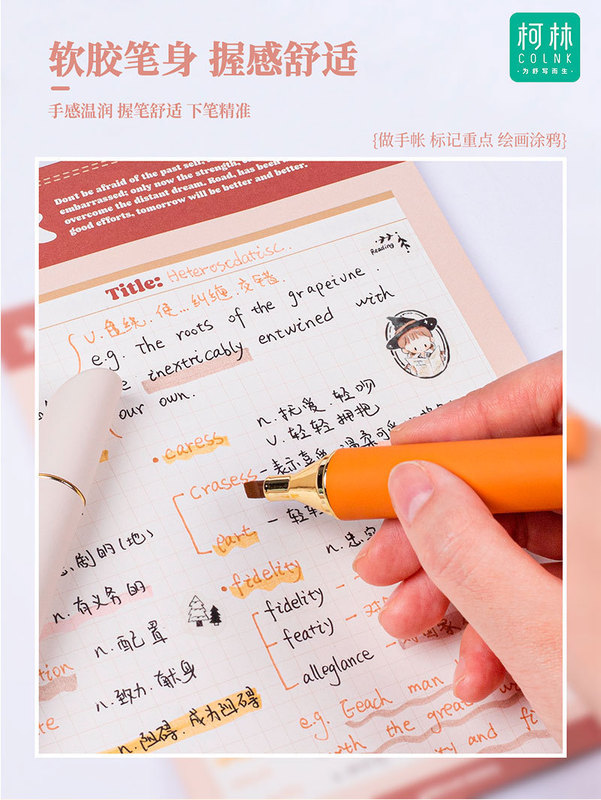 软胶笔身 握感舒适
柯林
COLNK
·为舒写而生·
手感温润 握笔舒适 下笔精准
{做手帐 标记重点 绘画涂鸦}
Dont be afraid of the past self,
embarrassed; only now the strength,
overcome the distant dream. Road, has been
good efforts, tomorrow will be better and better.
Reading
Title: Heteroscdatisc.
v.缠绕.使...纠缠,交错
e.g. the roots of the grapeiune.
inextricably entwined with
our own.
n.抚爱.轻吻
v.轻轻拥抱
caress
Crasess
part
n.有义务的
fidelity
n.配置
fidelity
featiy
n.致力.献身
alleglance
n.阻碍.成为阻碍
e.g. Geach man
the great
and